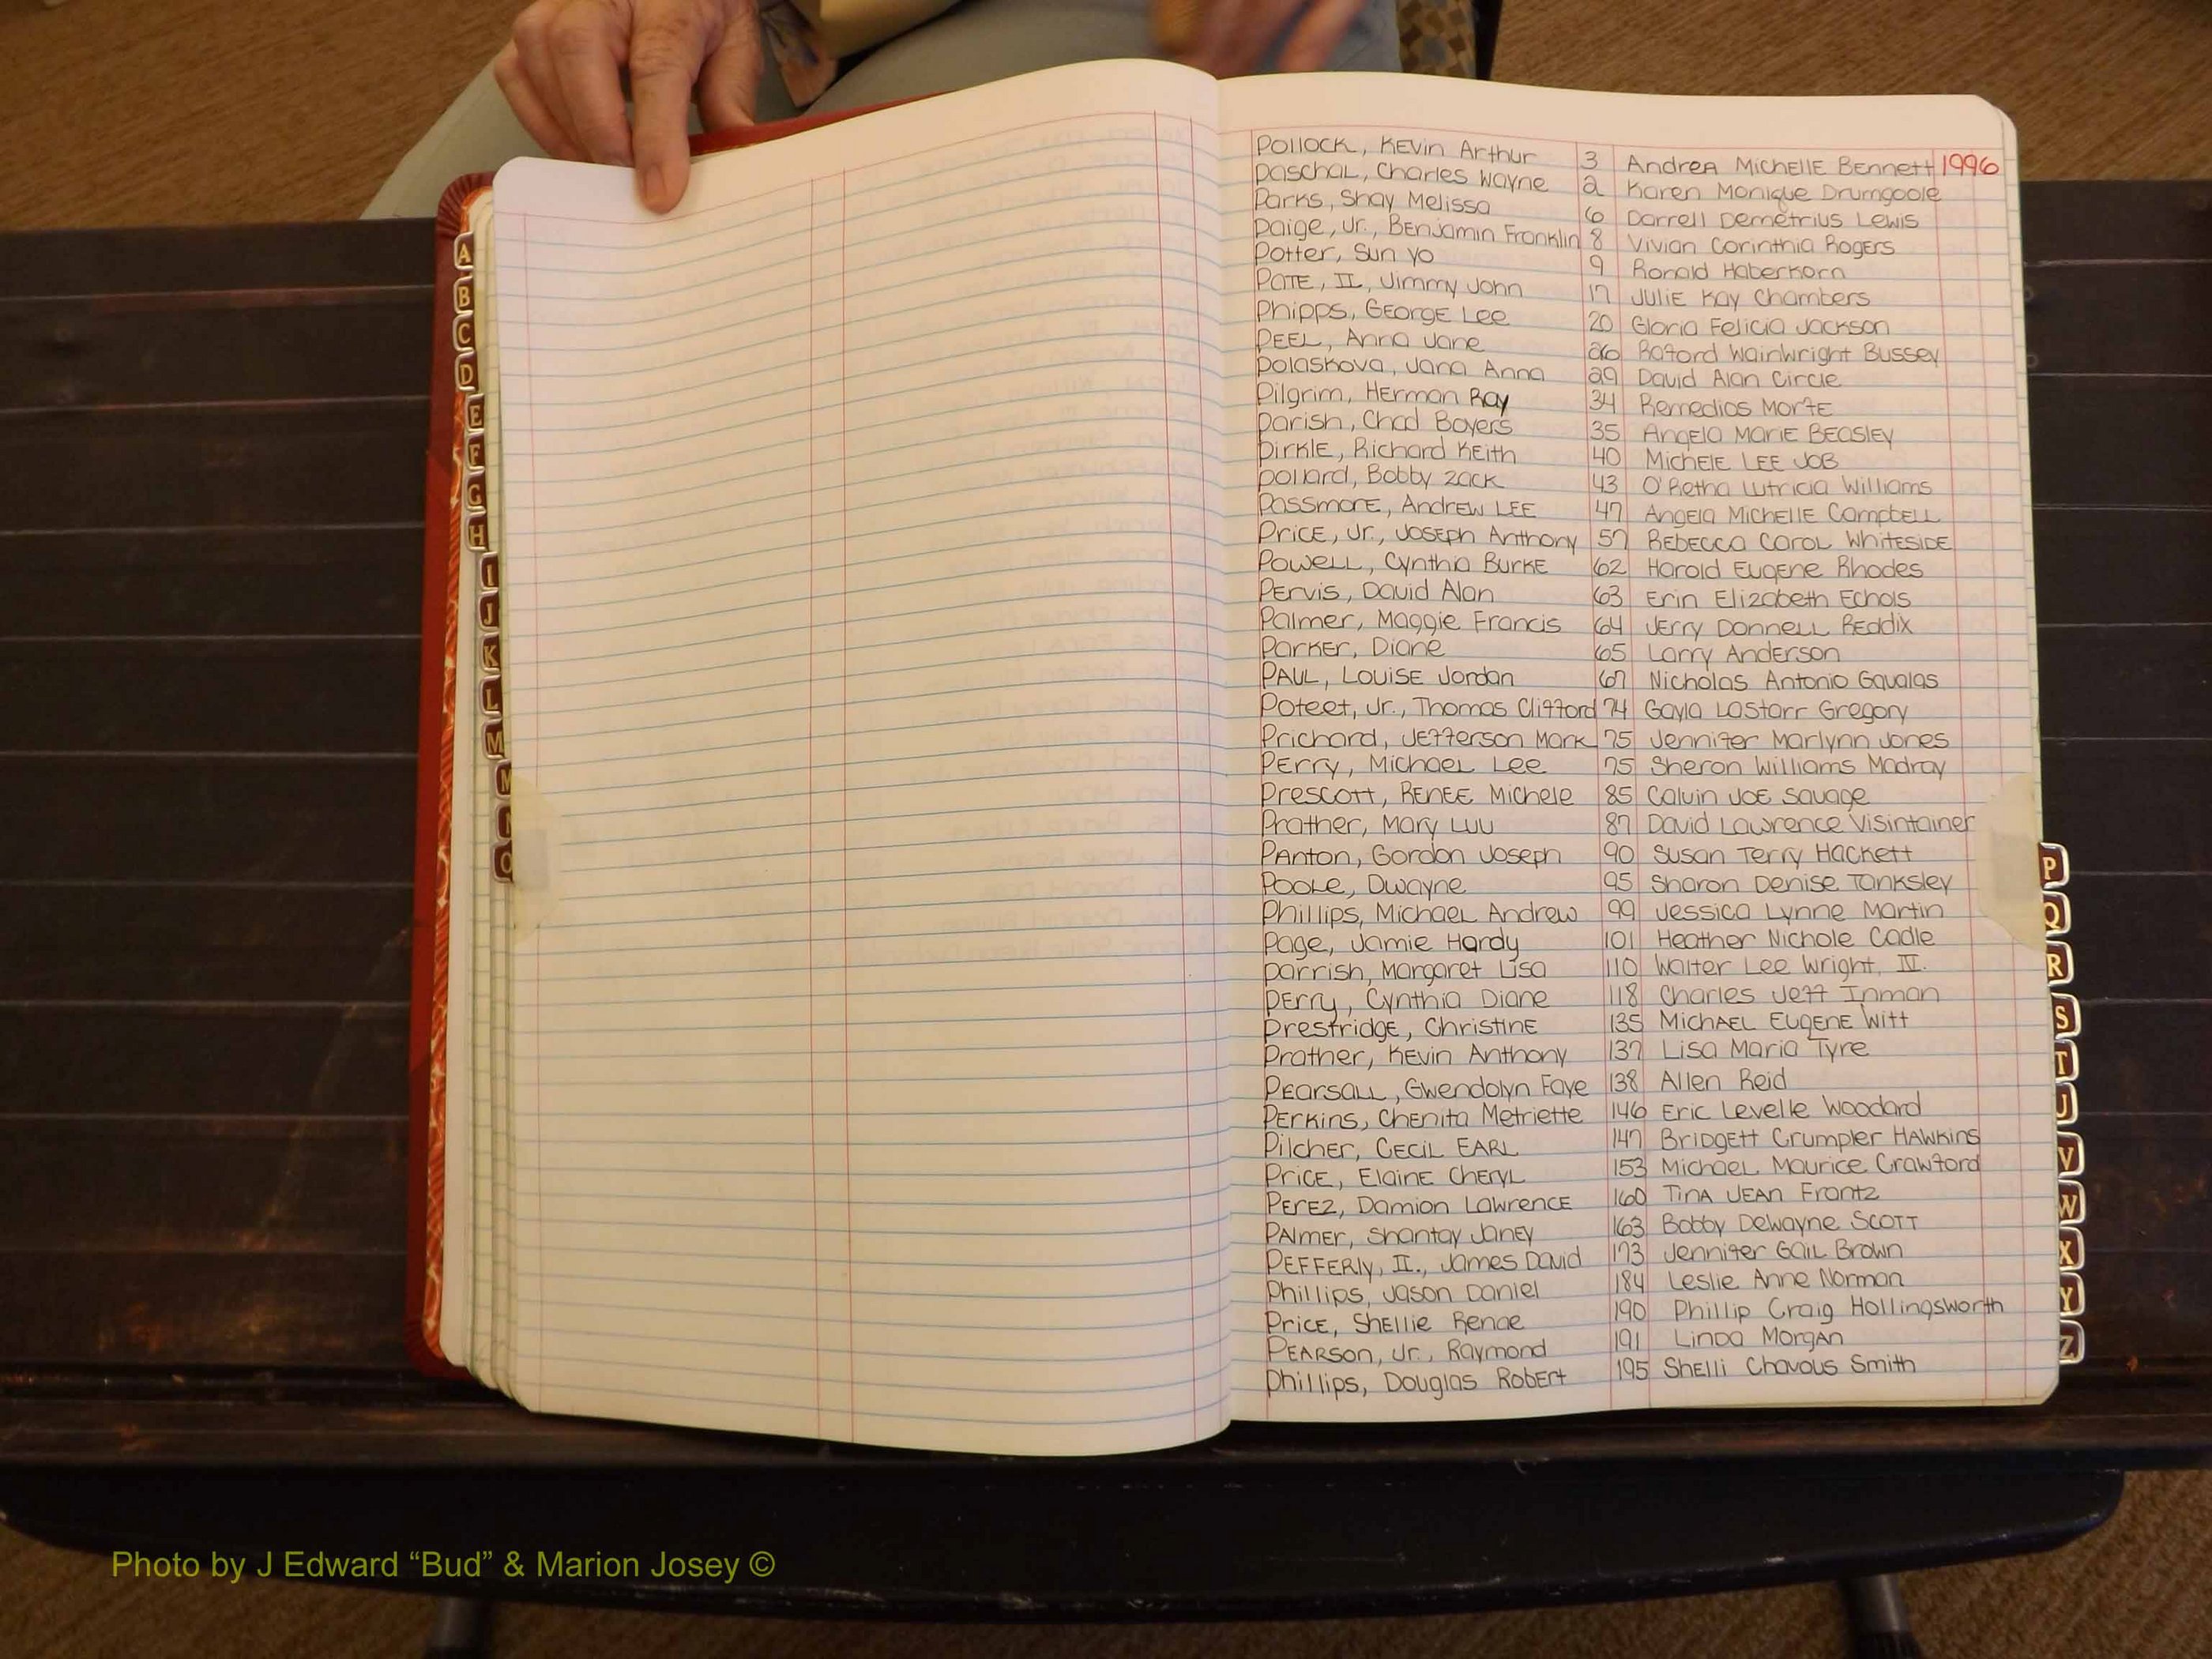 Pollock, Kevin Arthur 3 Andrea Michelle Bennett 1996
Paschal, Charles Wayne 2 Karen Monique Drumgoole
Parks, Shay Melissa 6 Darrell Demetrius Lewis
Paige, Jr., Benjamin Franklin 8 Vivian Corinthia Rogers
Potter, Sun Yo 9 Ronald Haberkorn
Pate, II, Jimmy John 17 Julie Kay Chambers
Phipps, George Lee 20 Gloria Felicia Jackson
Peel, Anna Jane 26 Raford Wainwright Bussey
Polaskova, Jana Anna 29 David Alan Circle
Pilgrim, Herman Ray 34 Remedios Morfe
Parish, Chad Boyers 35 Angela Marie Beasley
Pirkle, Richard Keith 40 Michele Lee Job
Pollard, Bobby Zack 43 O'Retha Lutricia Williams
Passmore, Andrew Lee 47 Angela Michelle Campbell
Price, Jr., Joseph Anthony 57 Rebecca Carol Whiteside
Powell, Cynthia Burke 62 Harold Eugene Rhodes
Pervis, David Alan 63 Erin Elizabeth Echols
Palmer, Maggie Francis 64 Jerry Donnell Reddix
Parker, Diane 65 Larry Anderson
Paul, Louise Jordan 67 Nicholas Antonio Gavalas
Poteet, Jr., Thomas Clifford 74 Gayla LaStarr Gregory
Prichard, Jefferson Mark 75 Jennifer Marlynn Jones
Perry, Michael Lee 75 Sheron Williams Madray
Prescott, Renee Michele 85 Calvin Joe Savage
Prather, Mary Luu 87 David Lawrence Visintainer
Panton, Gordon Joseph 90 Susan Terry Hackett
Poole, Dwayne 95 Sharon Denise Tanksley
Phillips, Michael Andrew 99 Jessica Lynne Martin
Page, Jamie Hardy 101 Heather Nichole Cadle
Parrish, Margaret Lisa 110 Walter Lee Wright, IV.
Perry, Cynthia Diane 118 Charles Jeff Inman
Prestridge, Christine 135 Michael Eugene Witt
Prather, Kevin Anthony 137 Lisa Maria Tyre
Pearsall, Gwendolyn Faye 138 Allen Reid
Perkins, Chenita Metriette 146 Eric Levelle Woodard
Pilcher, Cecil Earl 147 Bridgett Crumpler Hawkins
Price, Elaine Cheryl 153 Michael Maurice Crawford
Perez, Damion Lawrence 160 Tina Jean Frantz
Palmer, Shantay Janey 163 Bobby Dewayne Scott
Pefferly, II., James David 173 Jennifer Gail Brown
Phillips, Jason Daniel 184 Leslie Anne Norman
Price, Shellie Renae 190 Phillip Craig Hollingsworth
Pearson, Jr., Raymond 191 Linda Morgan
Phillips, Douglas Robert 195 Shelli Chavous Smith
A
B
C
D
E
F
G
H
I
J
K
L
M
M
N
O
P
Q
R
S
T
U
V
W
X
Y
Z
Photo by J Edward “Bud” & Marion Josey ©